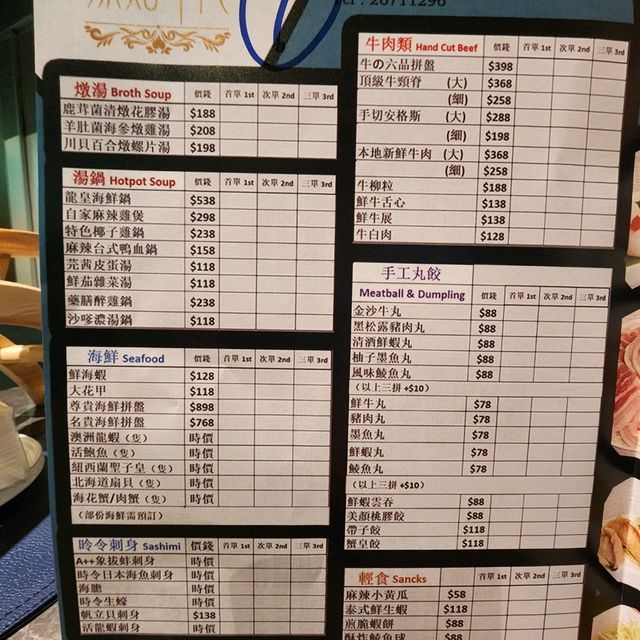 Tel : 26711296
燉湯 Broth Soup 價錢 首單 1st 次單 2nd 三單 3rd
鹿茸菌清燉花膠湯 $188
羊肚菌海參燉雞湯 $208
川貝百合燉螺片湯 $198
湯鍋 Hotpot Soup 價錢 首單 1st 次單 2nd 三單 3rd
龍皇海鮮鍋 $538
自家麻辣雞煲 $298
特色椰子雞鍋 $238
麻辣台式鴨血鍋 $158
芫茜皮蛋湯 $118
鮮茄雜菜湯 $118
藥膳醉雞鍋 $238
沙嗲濃湯鍋 $118
海鮮 Seafood 價錢 首單 1st 次單 2nd 三單 3rd
鮮海蝦 $128
大花甲 $118
尊貴海鮮拼盤 $898
名貴海鮮拼盤 $768
澳洲龍蝦（隻） 時價
活鮑魚（隻） 時價
紐西蘭聖子皇（隻） 時價
北海道扇貝（隻） 時價
海花蟹/肉蟹（隻） 時價
（部份海鮮需預訂）
時令刺身 Sashimi 價錢 首單 1st 次單 2nd 三單 3rd
A++象拔蚌刺身 時價
時令日本海魚刺身 時價
海膽 時價
時令生蠔 時價
帆立貝刺身 $138
活龍蝦刺身 時價
牛肉類 Hand Cut Beef 價錢 首單 1st 次單 2nd 三單 3rd
牛の六品拼盤 $398
頂級牛頸脊 (大) $368
(細) $258
手切安格斯 (大) $288
(細) $198
本地新鮮牛肉 (大) $368
(細) $258
牛柳粒 $188
鮮牛舌心 $138
鮮牛展 $138
牛白肉 $128
手工丸餃
Meatball & Dumpling 價錢 首單 1st 次單 2nd 三單 3rd
金沙牛丸 $88
黑松露豬肉丸 $88
清酒鮮蝦丸 $88
柚子墨魚丸 $88
風味鯪魚丸 $88
（以上三拼 +$10）
鮮牛丸 $78
豬肉丸 $78
墨魚丸 $78
鮮蝦丸 $78
鯪魚丸 $78
（以上三拼 +$10）
鮮蝦雲吞 $88
美顏桃膠餃 $88
帶子餃 $118
蟹皇餃 $118
輕食 Sancks 首單 1st 次單 2nd 三單 3rd
麻辣小黃瓜 $58
泰式鮮生蝦 $118
煎脆蝦餅 $88
酥炸鯪魚球 $88